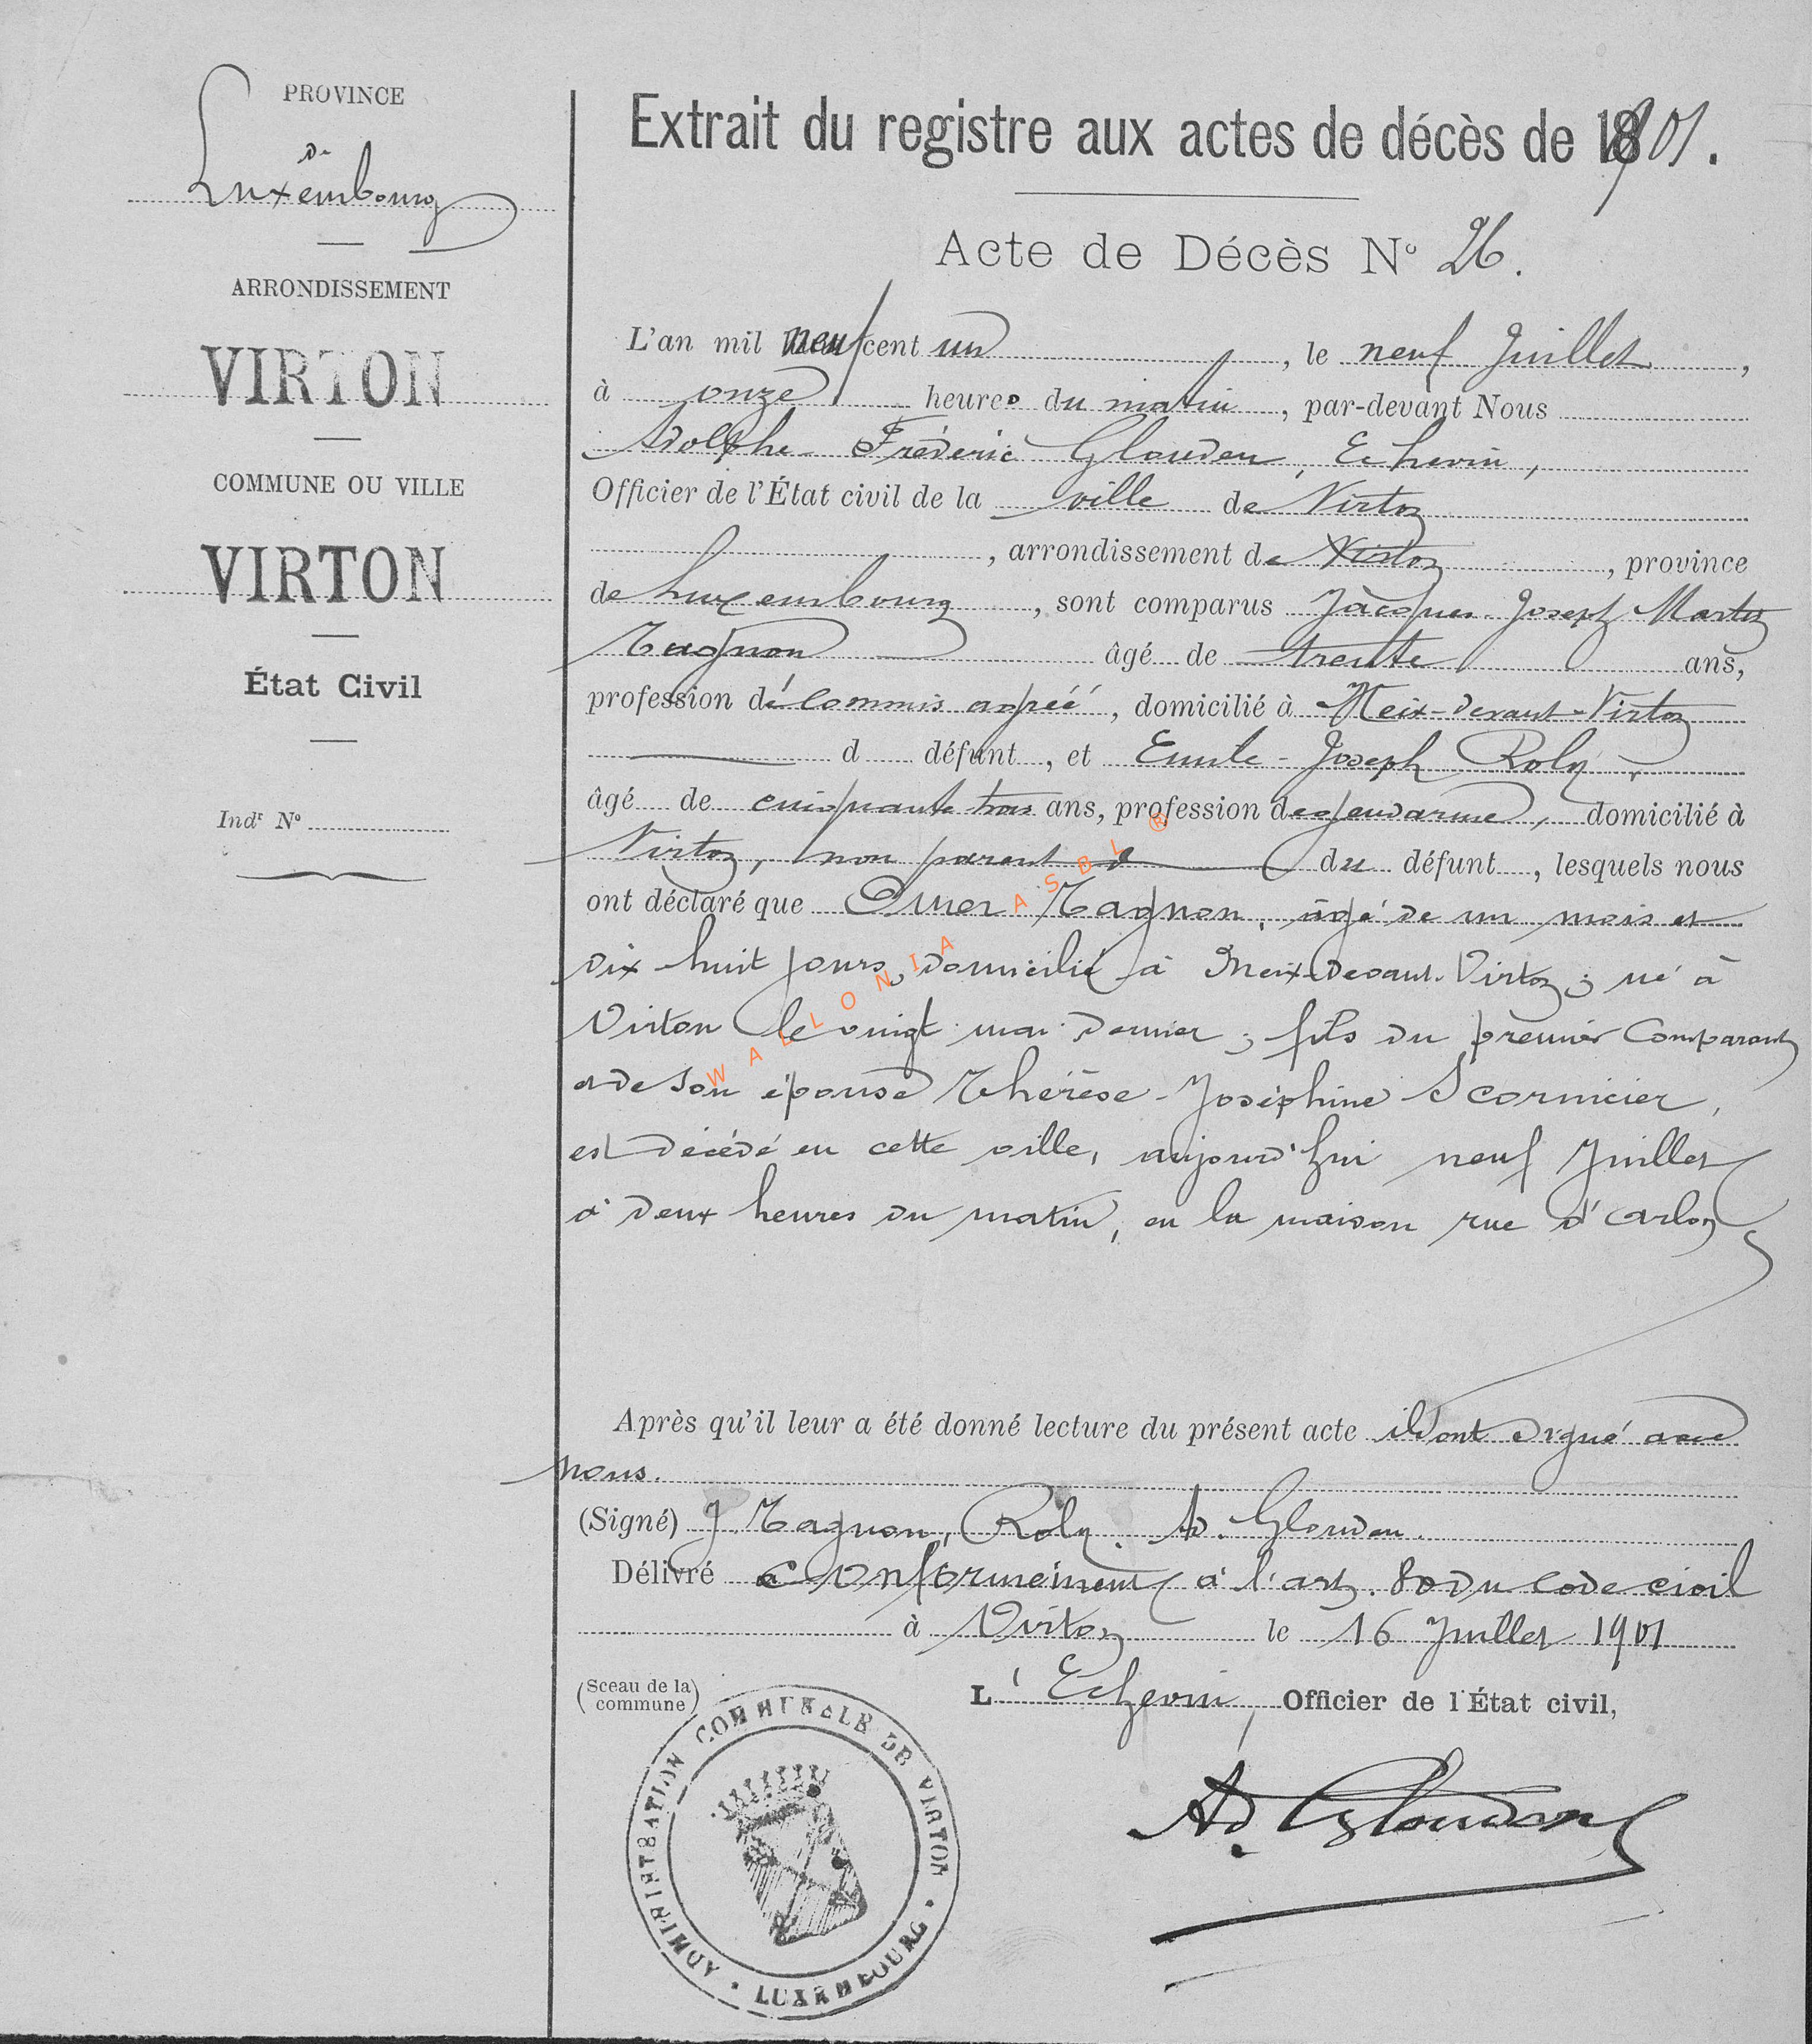 PROVINCE
de
Luxembourg
ARRONDISSEMENT
VIRTON
COMMUNE OU VILLE
VIRTON
État Civil
Indr No
Extrait du registre aux actes de décès de 1901.
Acte de Décès No 26.
L'an mil neuf cent un, le neuf Juillet,
à onze heures du matin, par-devant Nous
Adolphe Fréderic Glouden, Echevin,
Officier de l'État civil de la ville de Virton
, arrondissement de Virton, province
de Luxembourg, sont comparus Jacques Joseph Martin
Tagnon âgé de trente ans,
profession de commis agréé, domicilié à Meix-devant-Virton
d défunt, et Emile-Joseph Roly,
âgé de cinquante trois ans, profession de gendarme, domicilié à
Virton, non parent du défunt, lesquels nous
ont déclaré que Omer Tagnon, âgé de un mois et
dix huit jours, domicilié à Meix-devant-Virton; né à
Virton le vingt mai dernier; fils du premier Comparant
et de son épouse Thérèse-Joséphine Scornicier,
est décédé en cette ville, aujourd'hui neuf Juillet
à deux heures du matin, en la maison rue d'Arlon
Après qu'il leur a été donné lecture du présent acte ils ont signé avec
nous.
(Signé) J Tagnon, Roly. Ad. Glouden.
Délivré conformément à l'art. 80 du code civil
à Virton le 16 Juillet 1901
(Sceau de la commune)
L'Echevin, Officier de l'État civil,
Ad. Glouden
ADMINISTRATION COMMUNALE DE VIRTON • LUXEMBOURG •
WALLONIA ASBL ®